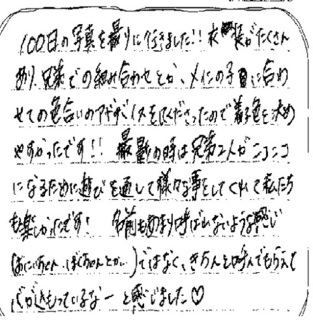 100日の写真を撮りに行きました!! 衣装がたくさん
あり、兄弟での組み合わせとか、メインの子に合わ
せての色合いのアドバイスをくださったので着る色を決め
やすかったです!! 撮影の時は兄弟2人がニコニコ
になるために遊びを通して様々な事をしてくれて私たち
も楽しかったです! 名前もあまり呼ばれないような感じ
(おにいちゃん、ぼくちゃんとか)ではなく、きちんと呼んでもらえて
心が込もっているなーと感じました♡